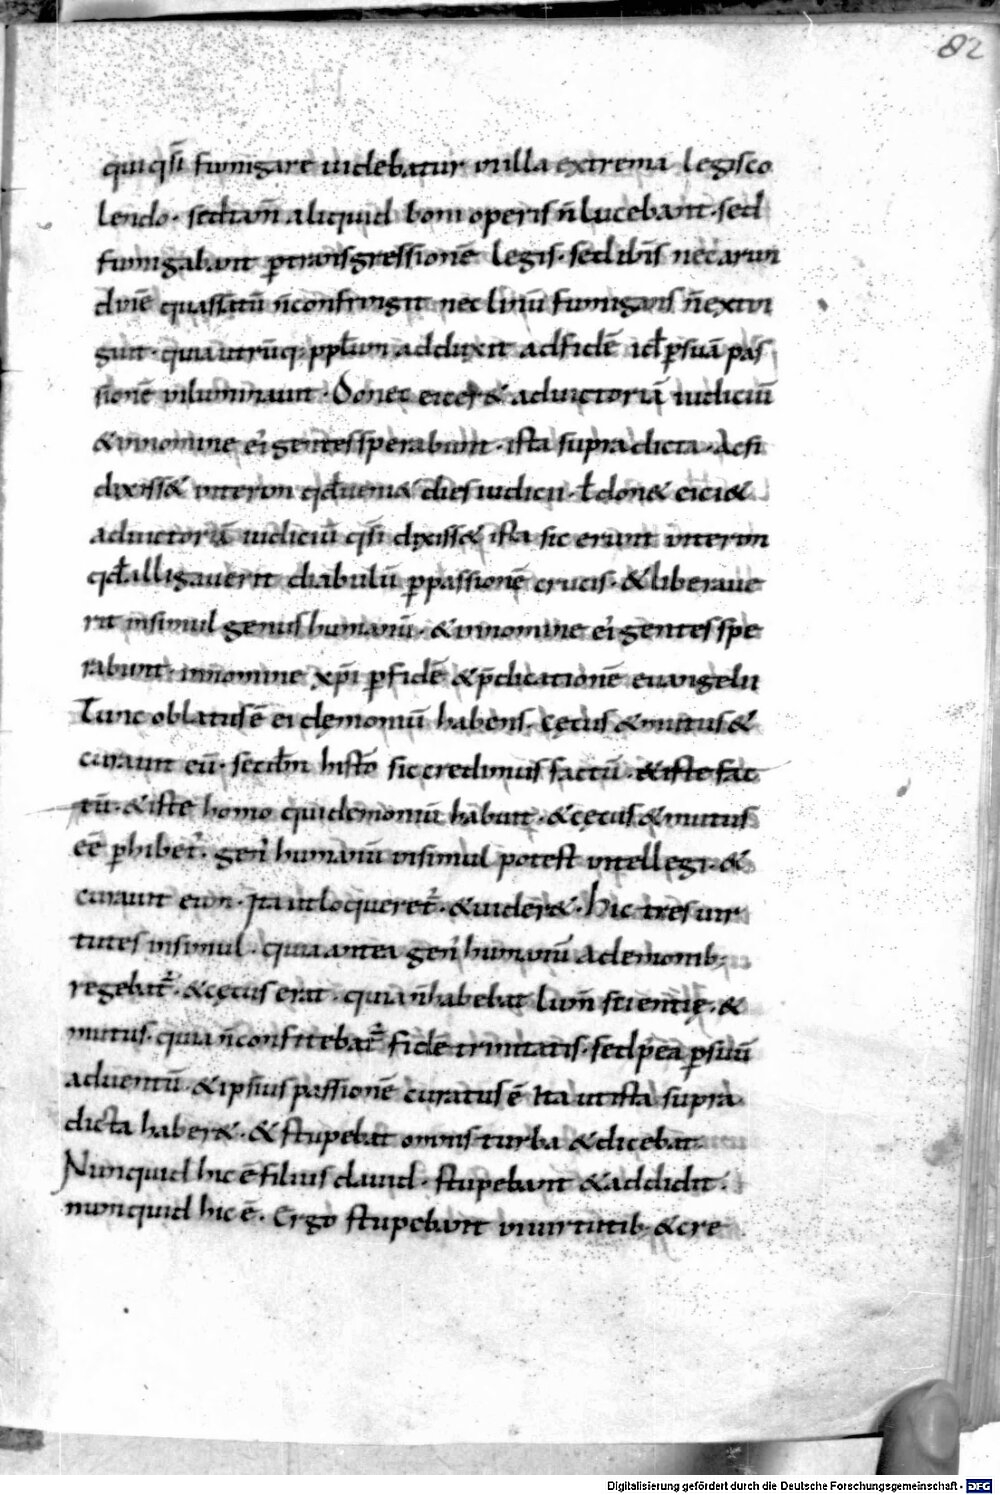 82
qui qsĩ fumigare uidebatur in illa extrema legis co
lendo · sed tam̃ aliquid boni operis ñ lucebant · sed
fumigabant p̱ transgressionẽ legis · sed ihs̃ nec arun
dinẽ quassatũ ñ confringit nec linũ fumigans ñ extin
guit · quia utrũq; ppl̃um adduxit ad fidẽ id ÷ p̱ suã pas
sionẽ inluminauit · Donec eicer& ad uictoriã iudiciũ
& in nomine ei' gentes sperabunt · ista supra dicta · Ac si
dixiss& interim qd̃ ueni& dies iudicii · ł don& eici&
ad uictoriã iudiciũ qsĩ dixiss& ista sic erunt interim
qd̃ alligauerit diabulũ p̱ passionẽ crucis · & liberaue
rit insimul genus humanũ · & in nomine ei' gentes spe
rabunt · in nomine xpĩ p̱ fidẽ & p̃dicationẽ euangelii
Tunc oblatus ẽ ei dęmoniũ habens · cęcus & mutus &
curauit eũ · secdm̃ histõ sic credimus factũ · & iste fac
tũ · & iste homo qui demoniũ habuit · & cęcus & mutus
eẽ p̱hibet̃ · gen' humanũ insimul potest intellegi · &
curauit eum · Ita ut loqueret̃ · & uider& · Hic tres uir
tutes insimul · quia antea gen' humanũ a demonib;
regebat̃ · & cęcus erat · quia ñ habebat lum̃ scientię · &
mutus · quia ñ confitebat̃ fidẽ trinitatis · sed p̃ea p̱ suũ
aduentũ · & ipsius passionẽ curatus ẽ Ita ut ista supra
dicta haber& · & stupebat omnis turba & dicebat
Nunquid hic ẽ filius dauid · stupebant & addidit ·
nunquid hic ẽ · Ergo stupebant in uirtutib; & cre
Digitalisierung gefördert durch die Deutsche Forschungsgemeinschaft - DFG